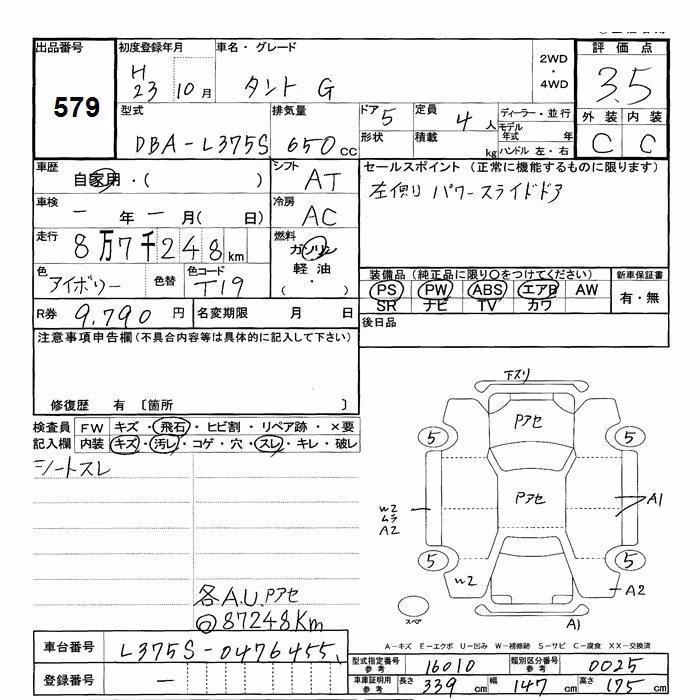 出品番号
579
初度登録年月
H
23 10月
車名・グレード
タント G
2WD
・
4WD
評価点
3.5
外装 内装
C C
型式
DBA-L375S
排気量
650cc
ドア 5
形状
定員 4人
積載 kg
ディーラー・並行
モデル年式 年
ハンドル 左・右
車歴
自家用・( )
シフト
AT
セールスポイント (正常に機能するものに限ります)
左側り パワースライドドア
車検
ー年ー月( 日)
冷房
AC
走行
8万7千248km
燃料
ガソリン
軽油
( ・ )
色
アイボリー
色替
色コード
T19
装備品 (純正品に限り○をつけてください)
PS PW ABS エアB AW
SR ナビ TV カワ
新車保証書
有・無
R券 9,790円
名変期限 月 日
後日品
注意事項申告欄 (不具合内容等は具体的に記入して下さい)
修復歴 有 〔箇所 〕
検査員 FW キズ・飛石・ヒビ割・リペア跡・×要
記入欄 内装 キズ・汚レ・コゲ・穴・スレ・キレ・破レ
シートスレ
各A.U.Pアセ
◎87248Km
下スリ
Pアセ
5 5
Pアセ
W2
ムラ
A2
A1
5 5
W2
A2
スペア
A1
A-キズ E-エクボ U-凹み W-補修跡 S-サビ C-腐食 XX-交換済
車台番号 L375S-0476455
登録番号 ー
型式指定番号 参考 16010
類別区分番号 参考 0025
車庫証明用 参考 長さ 339cm 幅 147cm 高さ 175cm